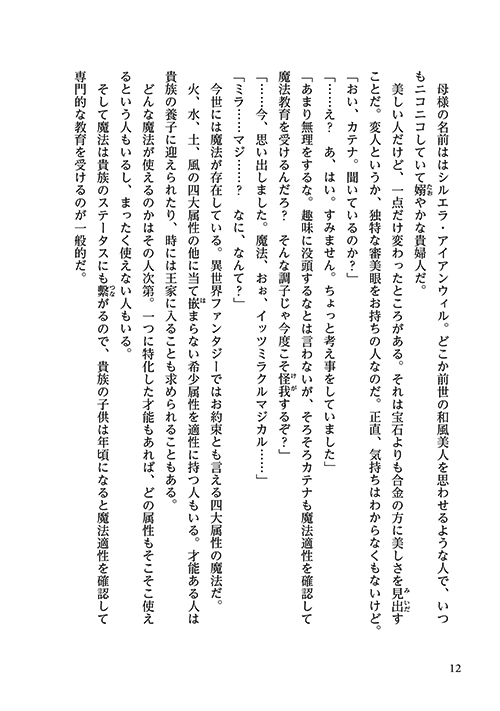 母様の名前ははシルエラ・アイアンウィル。どこか前世の和風美人を思わせるような人で、いつ
もニコニコしていて嫋やかな貴婦人だ。
美しい人だけど、一点だけ変わったところがある。それは宝石よりも合金の方に美しさを見出す
ことだ。変人というか、独特な審美眼をお持ちの人なのだ。正直、気持ちはわからなくもないけど。
「おい、カテナ。聞いているのか？」
「……え？　あ、はい。すみません。ちょっと考え事をしていました」
「あまり無理をするな。趣味に没頭するなとは言わないが、そろそろカテナも魔法適性を確認して
魔法教育を受けるんだろ？　そんな調子じゃ今度こそ怪我するぞ？」
「……今、思い出しました。魔法、おぉ、イッツミラクルマジカル……」
「ミラ……マジ……？　なに、なんて？」
今世には魔法が存在している。異世界ファンタジーではお約束とも言える四大属性の魔法だ。
火、水、土、風の四大属性の他に当て嵌まらない希少属性を適性に持つ人もいる。才能ある人は
貴族の養子に迎えられたり、時には王家に入ることも求められることもある。
どんな魔法が使えるのかはその人次第。一つに特化した才能もあれば、どの属性もそこそこ使え
るという人もいるし、まったく使えない人もいる。
そして魔法は貴族のステータスにも繋がるので、貴族の子供は年頃になると魔法適性を確認して
専門的な教育を受けるのが一般的だ。
12